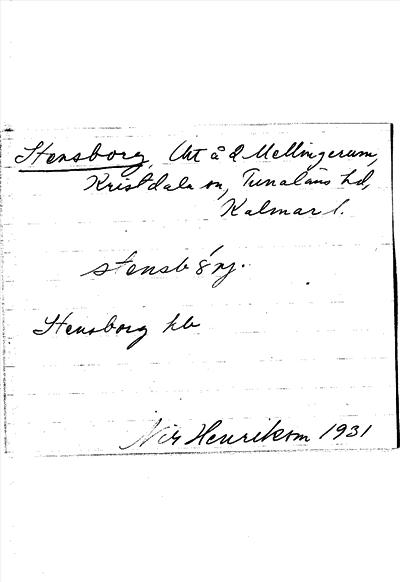 Stensborg, Uht å d Mellingerum,
Kristdala sn, Tunaläns hd,
Kalmar l.
stensb
Stensborg hb
Nils Henrikson 1931